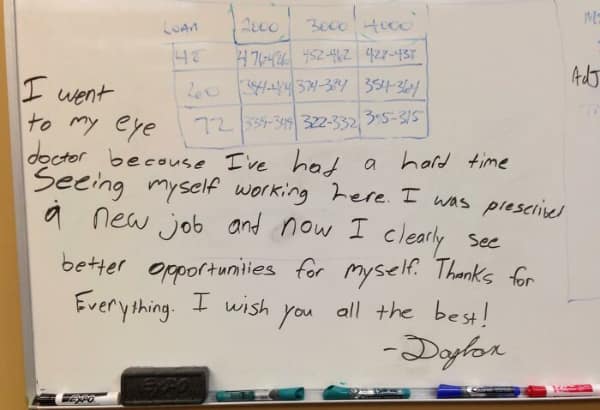 LOAN 2000 3000 4000
48 452-462
60 374-384 354-364
72 339-349 322-332 305-315
Adj
I went
to my eye
doctor because I've had a hard time
Seeing myself working here. I was prescribed
a new job and now I clearly see
better opportunities for myself. Thanks for
Everything. I wish you all the best!
EXPO
EXPO